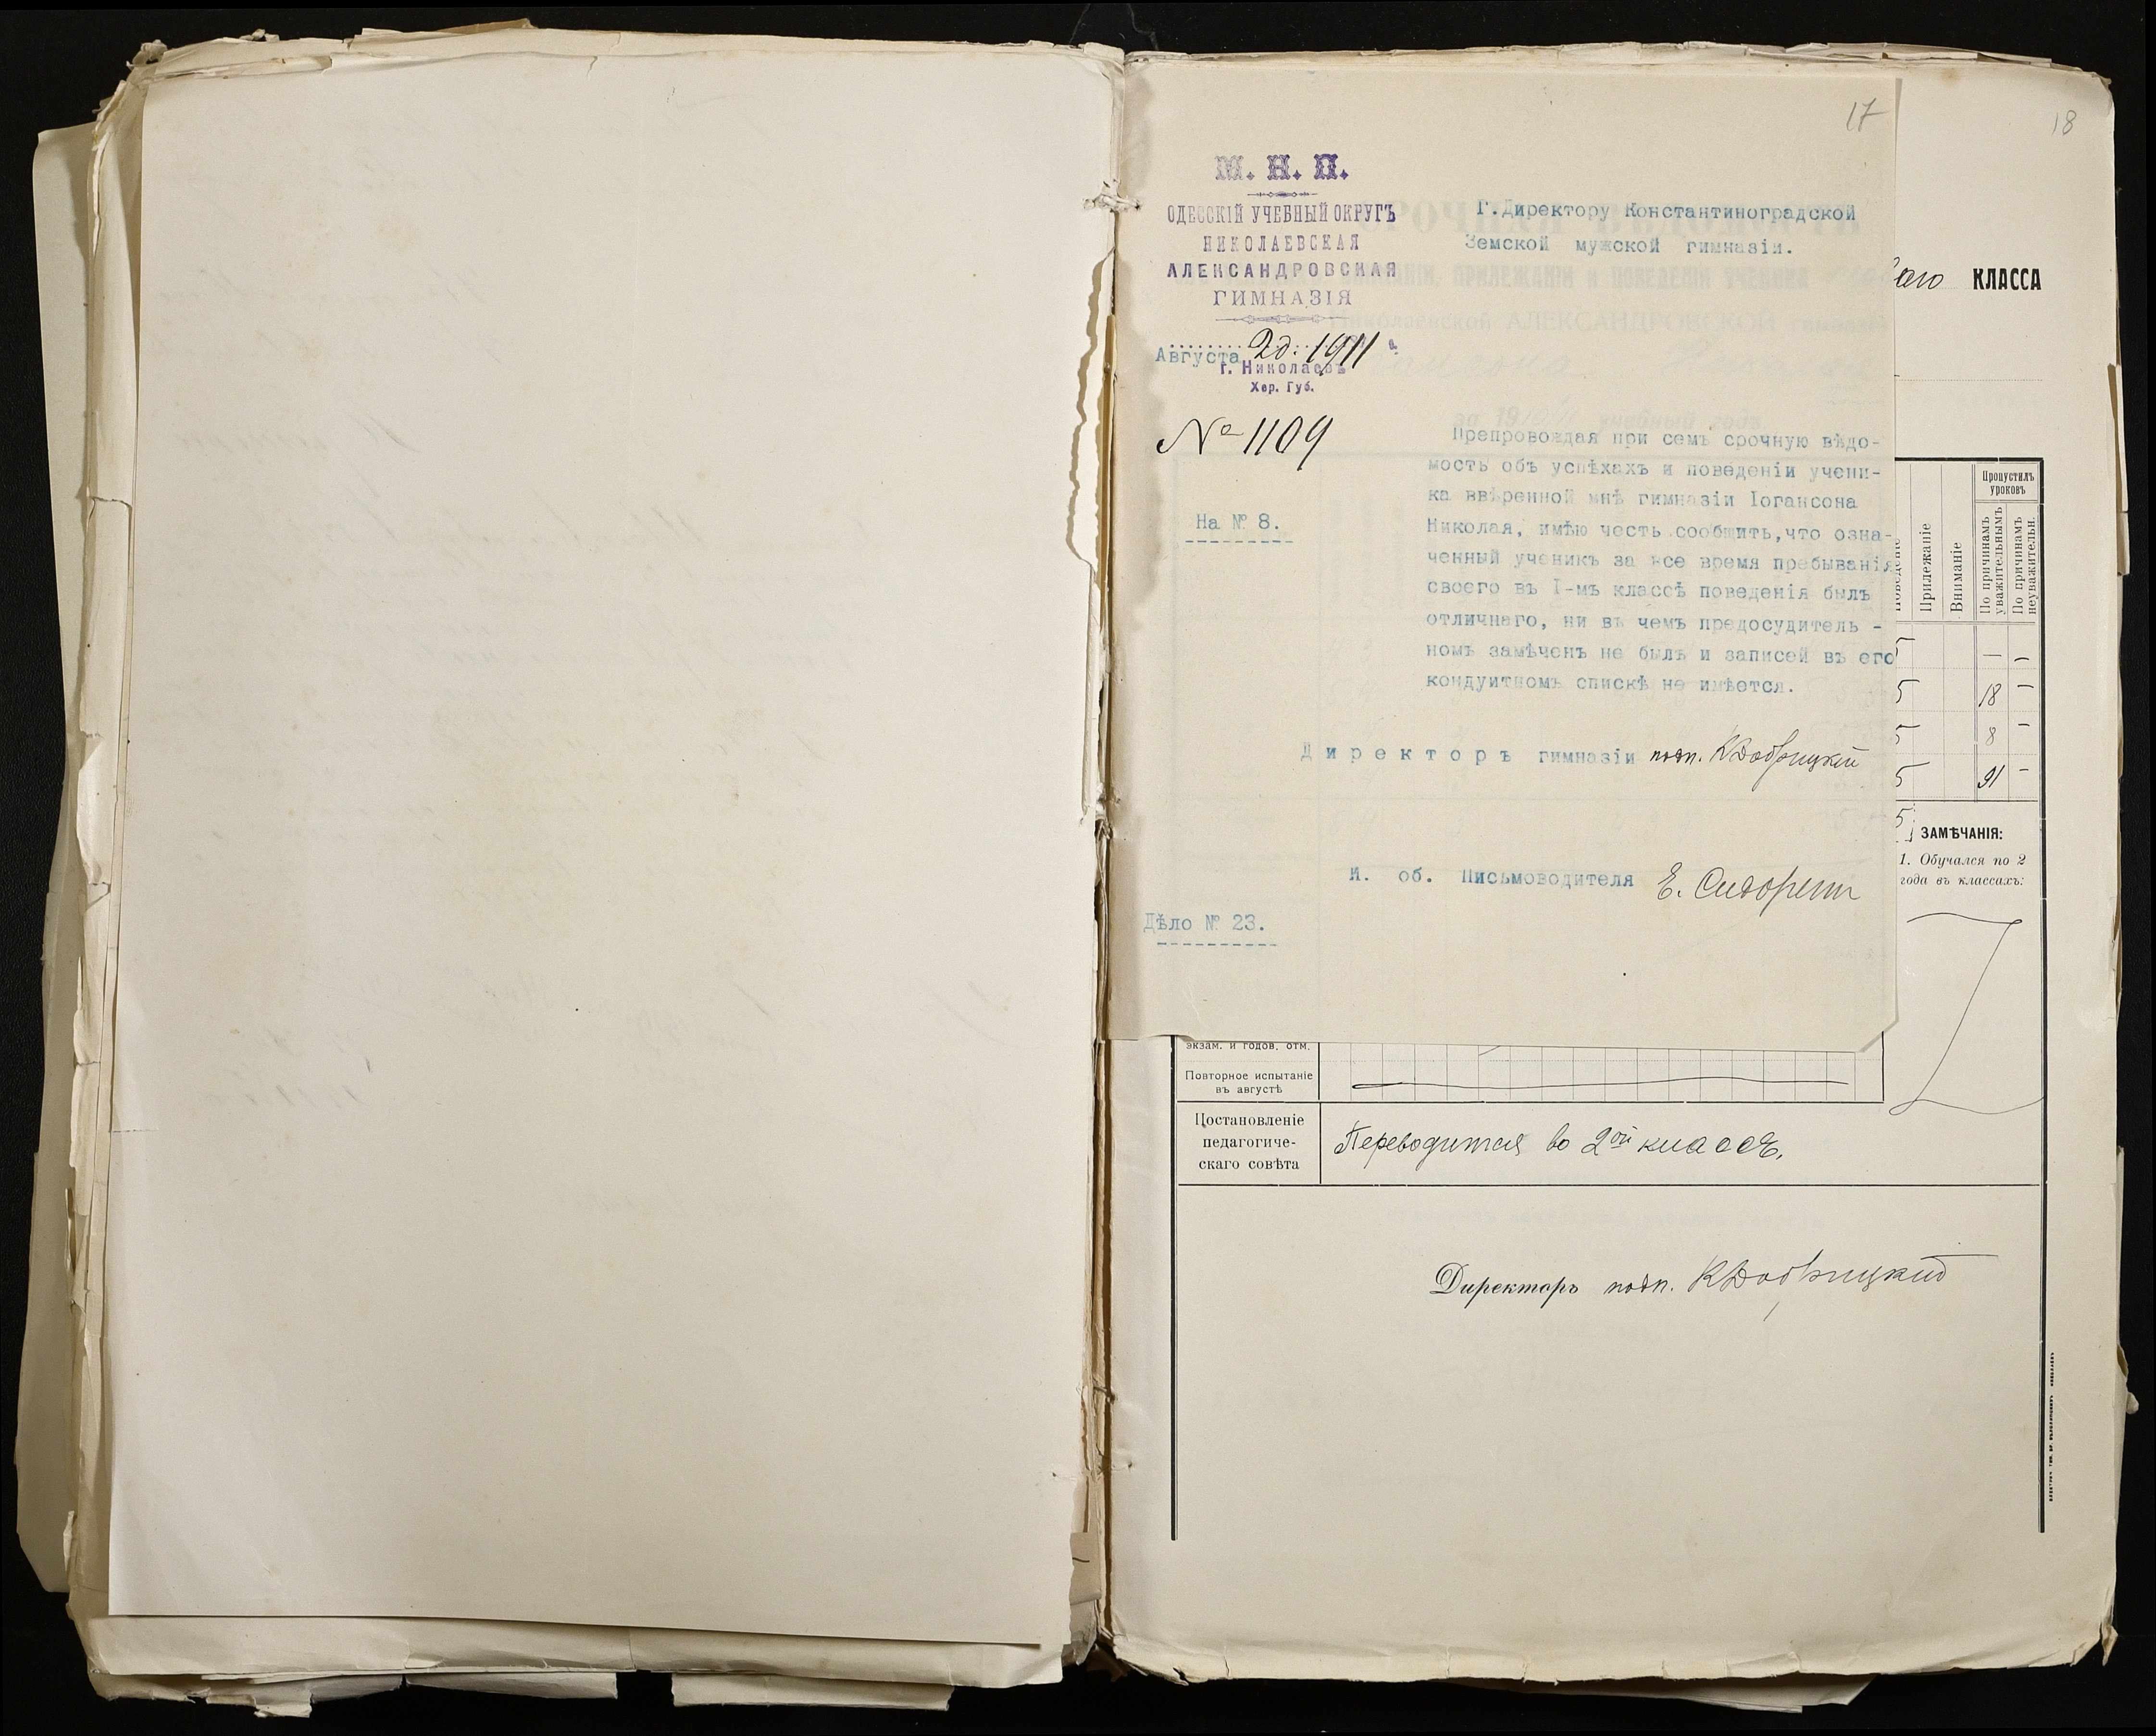 17
18
М. Н. П.
ОДЕССКІЙ УЧЕБНЫЙ ОКРУГЪ
НИКОЛАЕВСКАЯ
АЛЕКСАНДРОВСКАЯ
ГИМНАЗІЯ
Августа 2д. 1911 г.
г. Николаевъ
Хер. Губ.
№ 1109
На № 8.
Г.Директору Константиноградской
Земской мужской гимназіи.
Препровождая при семъ срочную вѣдо-
мость объ успѣхахъ и поведеніи учени-
ка ввѣренной мнѣ гимназіи Іогансона
Николая, имѣю честь сообщить,что озна-
ченный ученикъ за все время пребыванія
своего въ I-мъ классѣ поведенія былъ
отличнаго, ни въ чемъ предосудитель -
номъ замѣченъ не былъ и записей въ его
кондуитномъ спискѣ не имѣется.
Директоръ гимназіи подп. КДобрицкій
И. об. Письмоводителя Е.
Дѣло № 23.
КЛАССА
Поведеніе
Прилежаніе
Вниманіе
Пропустилъ
уроковъ
По причинамъ
уважительнымъ
По причинамъ
неуважительн.
5 — —
5 18 —
5 8 —
5 91 —
5
ЗАМѢЧАНІЯ:
1. Обучался по 2
года въ классахъ:
экзам. и годов. отм.
Повторное испытаніе
въ августѣ
Постановленіе
педагогиче-
скаго совѣта
Переводится во 2ой классъ.
Директоръ подп. КДобрицкій